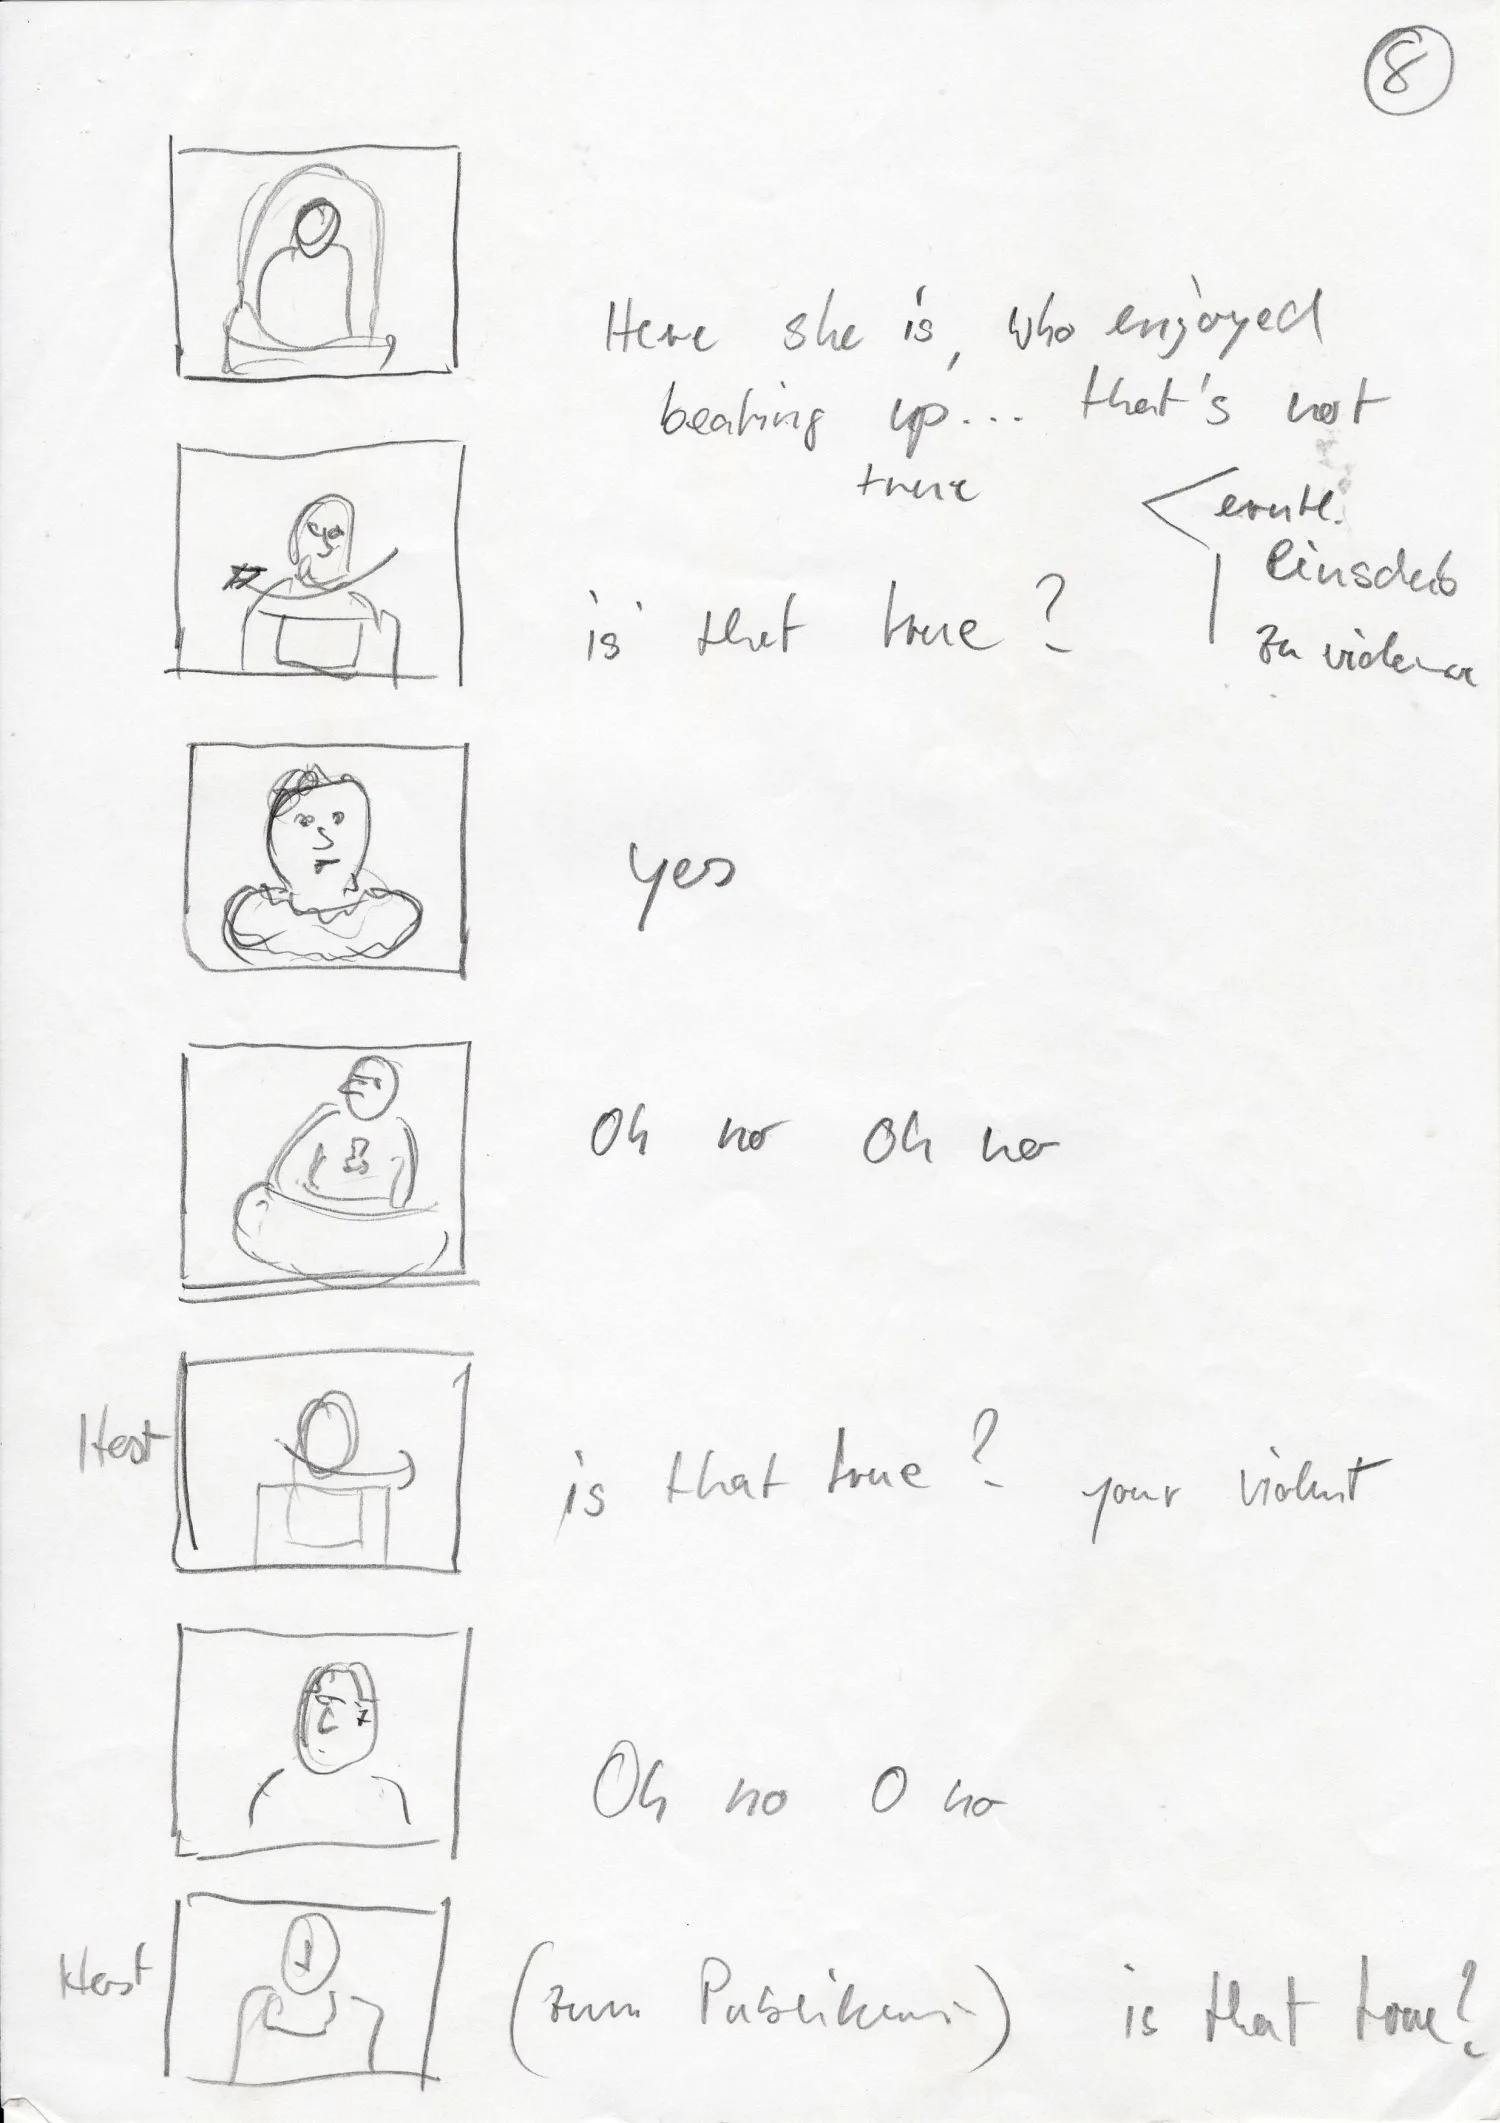 8
Here she is, who enjoyed
beating up... that's not
true
< evntl.
Einschub
zu violence
is that true?
yes
Oh no Oh no
Host
is that true? your violent
Oh no O no
Host
(zum Publikum) is that true?